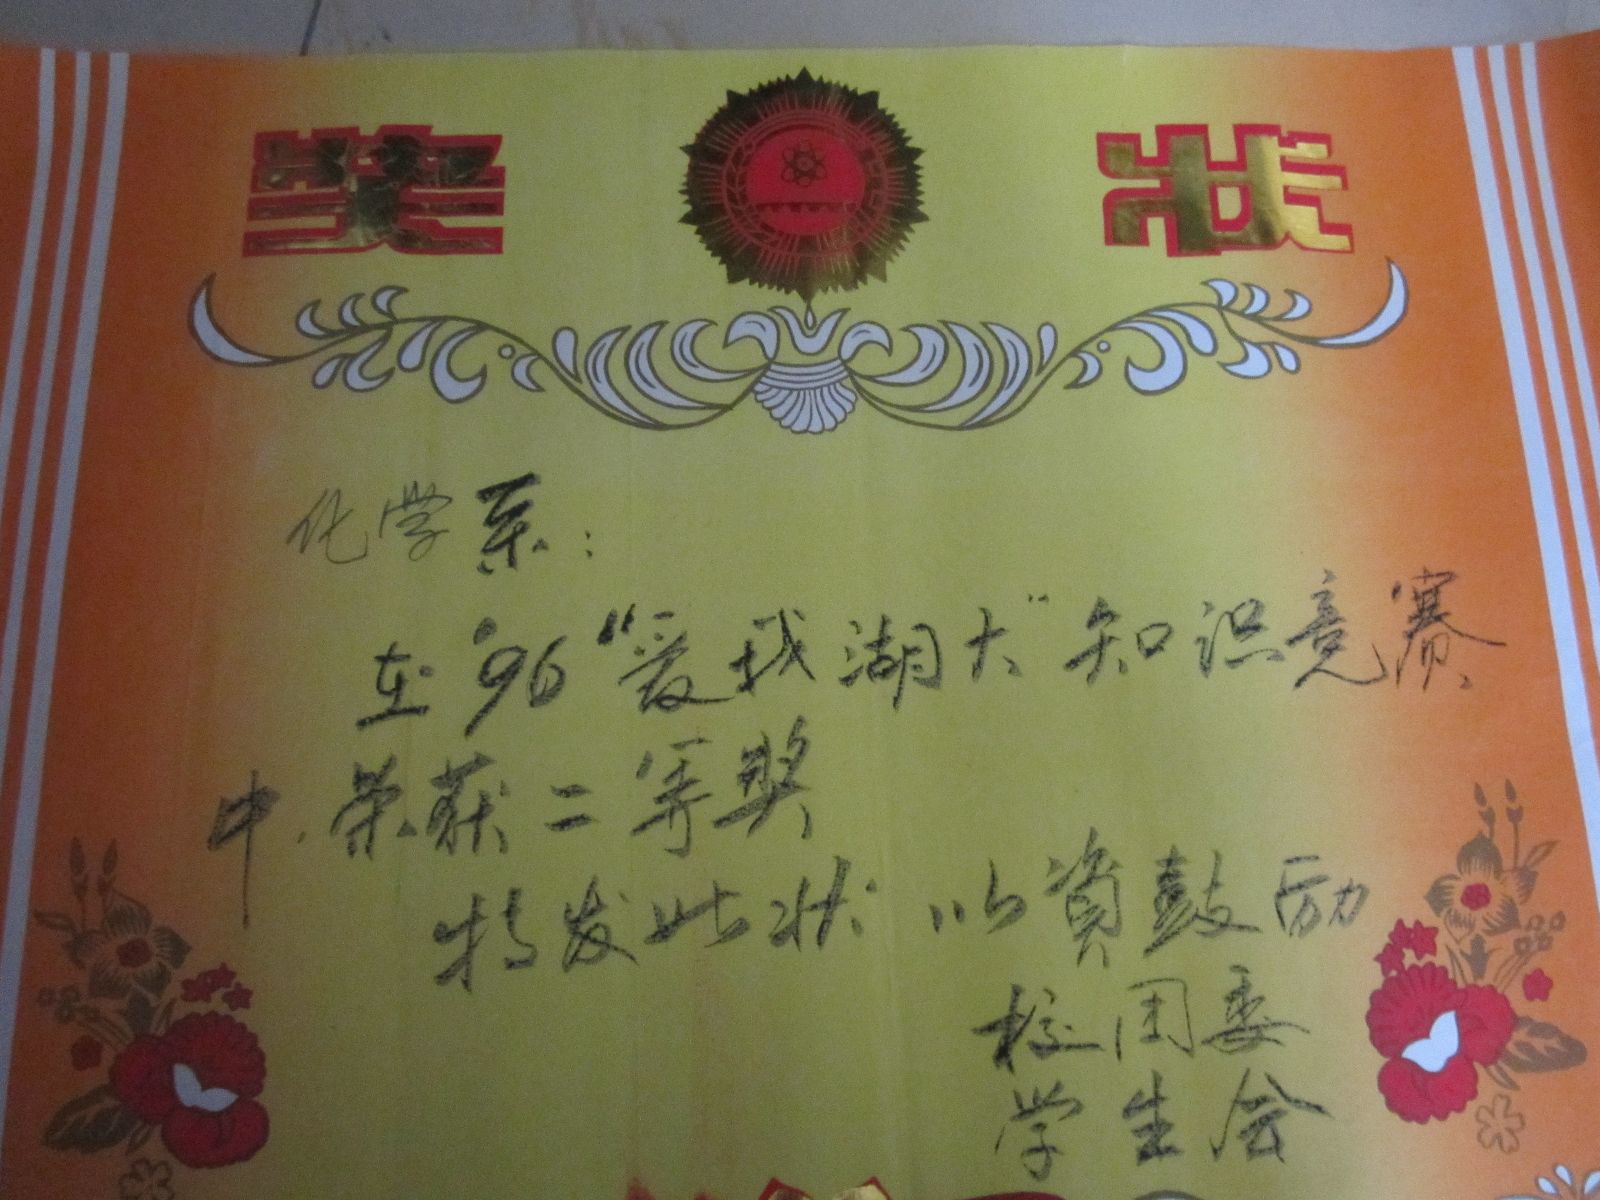 奖状
化学系：
在'96“爱我湖大”知识竞赛
中.荣获二等奖
特发此状 以資鼓励
校团委
学生会